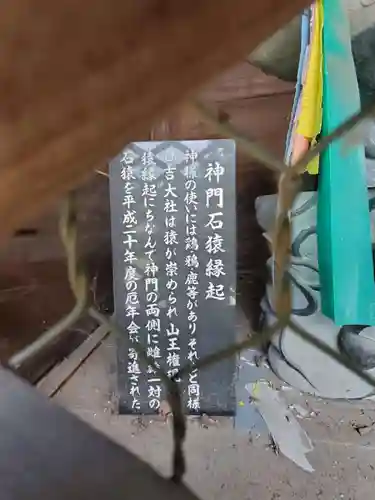 神門石猿縁起
神様の使いには鶏・鴉・鹿等がありそれ と同様
吉大社は猿が崇められ 山王権
猿縁起にちなんで神門の両側に雌 一対の
石猿を平成二十年度の厄年会が 進された